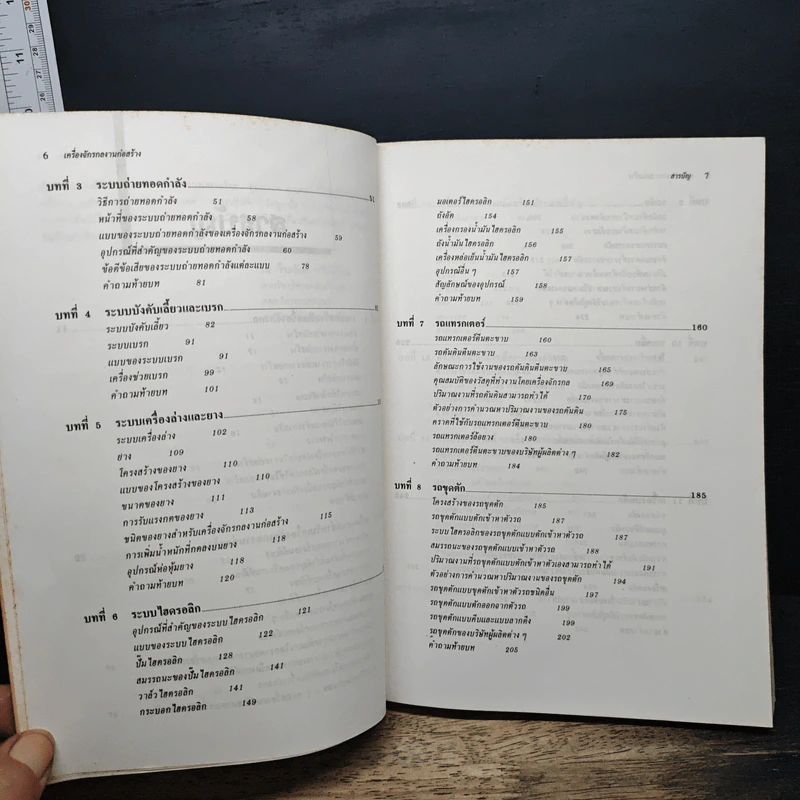 6 เครื่องจักรกลงานก่อสร้าง
บทที่ 3 ระบบถ่ายทอดกำลัง 51
วิธีการถ่ายทอดกำลัง 51
หน้าที่ของระบบถ่ายทอดกำลัง 58
แบบของระบบถ่ายทอดกำลังของเครื่องจักรกลงานก่อสร้าง 59
อุปกรณ์ที่สำคัญของระบบถ่ายทอดกำลัง 60
ข้อดีข้อเสียของระบบถ่ายทอดกำลังแต่ละแบบ 78
คำถามท้ายบท 81
บทที่ 4 ระบบบังคับเลี้ยวและเบรก
ระบบบังคับเลี้ยว 82
ระบบเบรก 91
แบบของระบบเบรก 91
เครื่องช่วยเบรก 99
คำถามท้ายบท 101
บทที่ 5 ระบบเครื่องล่างและยาง
ระบบเครื่องล่าง 102
ยาง 109
โครงสร้างของยาง 110
แบบของโครงสร้างของยาง 110
ขนาดของยาง 111
การรับแรงกดของยาง 113
ชนิดของยางสำหรับเครื่องจักรกลงานก่อสร้าง 115
การเพิ่มน้ำหนักที่กดลงบนยาง 118
อุปกรณ์ห่อหุ้มยาง 118
คำถามท้ายบท 120
บทที่ 6 ระบบไฮดรอลิก
อุปกรณ์ที่สำคัญของระบบไฮดรอลิก 121
แบบของระบบไฮดรอลิก 122
ปั๊มไฮดรอลิก 128
สมรรถนะของปั๊มไฮดรอลิก 141
วาล์วไฮดรอลิก 141
กระบอกไฮดรอลิก 149
สารบัญ 7
มอเตอร์ไฮดรอลิก 151
ถังอัด 154
เครื่องกรองน้ำมันไฮดรอลิก 155
ถังน้ำมันไฮดรอลิก 156
เครื่องหล่อเย็นน้ำมันไฮดรอลิก 157
อุปกรณ์อื่น ๆ 157
สัญลักษณ์ของอุปกรณ์ 158
คำถามท้ายบท 159
บทที่ 7 รถแทรกเตอร์ 160
รถแทรกเตอร์ตีนตะขาบ 160
รถดันดินตีนตะขาบ 163
ลักษณะการใช้งานของรถดันดินตีนตะขาบ 165
คุณสมบัติของวัสดุที่ทำงานโดยเครื่องจักรกล 169
ปริมาณงานที่รถดันดินสามารถทำได้ 170
ตัวอย่างการคำนวณหาปริมาณงานของรถดันดิน 175
คราดที่ใช้กับรถแทรกเตอร์ตีนตะขาบ 180
รถแทรกเตอร์ล้อยาง 180
รถแทรกเตอร์ตีนตะขาบของบริษัทผู้ผลิตต่าง ๆ 182
คำถามท้ายบท 184
บทที่ 8 รถขุดตัก 185
โครงสร้างของรถขุดตัก 185
รถขุดตักแบบตักเข้าหาตัวรถ 187
ระบบไฮดรอลิกของรถขุดตักแบบตักเข้าหาตัวรถ 187
สมรรถนะของรถขุดตักแบบเข้าหาตัวรถ 188
ปริมาณงานที่รถขุดตักแบบตักเข้าหาตัวเองสามารถทำได้ 191
ตัวอย่างการคำนวณหาปริมาณงานของรถขุดตัก 194
รถขุดตักแบบขุดตักเข้าหาตัวรถชนิดอื่น 197
รถขุดตักแบบตักออกจากตัวรถ 199
รถขุดตักแบบคีบและแบบลากดึง 199
รถขุดตักของบริษัทผู้ผลิตต่าง ๆ 202
คำถามท้ายบท 205